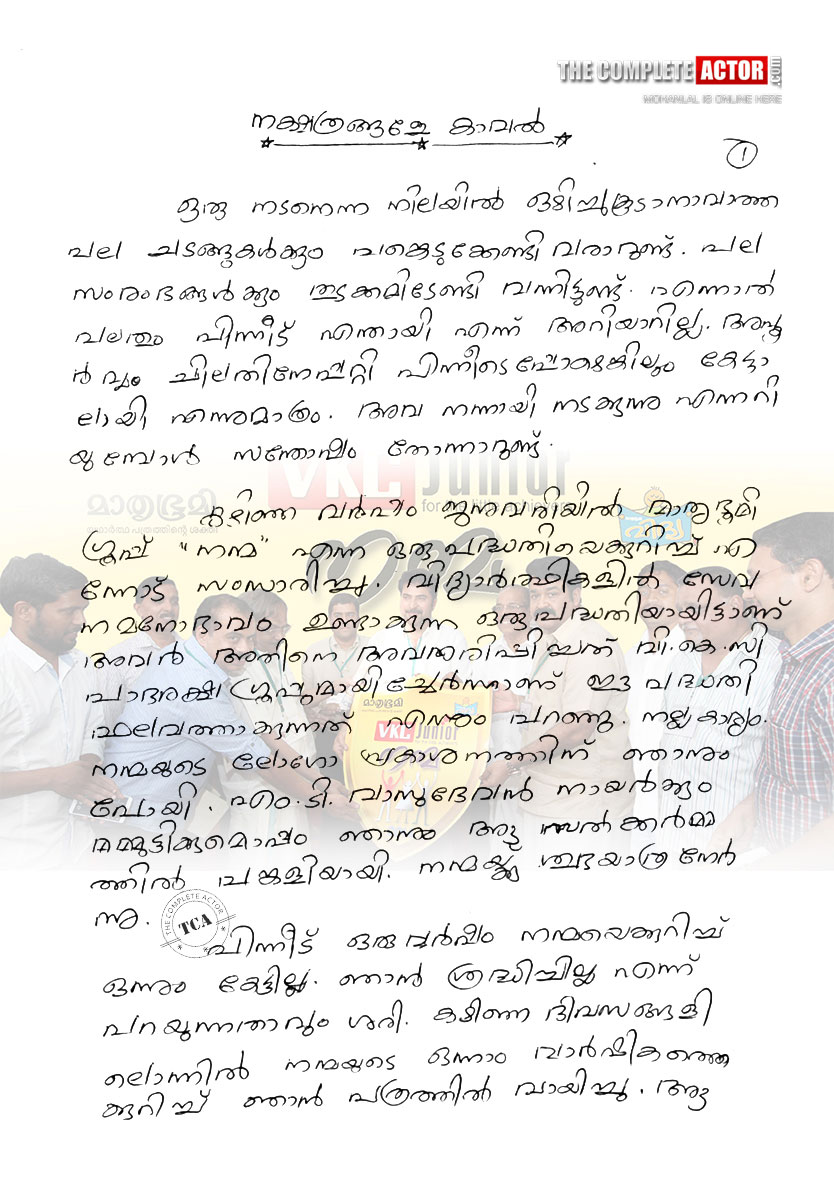 THE COMPLETE ACTOR .com
MOHANLAL IS ONLINE HERE
നക്ഷത്രങ്ങളേ കാവൽ
1
ഒരു നടനെന്ന നിലയിൽ ഒഴിച്ചുകൂടാനാവാത്ത
പല ചടങ്ങുകൾക്കും പങ്കെടുക്കേണ്ടി വരാറുണ്ട്. പല
സംരംഭങ്ങൾക്കും തുടക്കമിടേണ്ടി വന്നിട്ടുണ്ട്. എന്നാൽ
പലതും പിന്നീട് എന്തായി എന്ന് അറിയാറില്ല. അപൂ
ർവ്വം ചിലതിനേപ്പറ്റി പിന്നീടെപ്പോഴെങ്കിലും കേട്ടാ
ലായി എന്നുമാത്രം. അവ നന്നായി നടക്കുന്നു എന്നറി
യുമ്പോൾ സന്തോഷം തോന്നാറുണ്ട്.
VKC Junior
മാതൃഭൂമി
യഥാർത്ഥ പത്രത്തിന്റെ ശക്തി
കഴിഞ്ഞ വർഷം ജനുവരിയിൽ മാതൃഭൂമി
ഗ്രൂപ്പ് "നന്മ" എന്ന ഒരു പദ്ധതിയെക്കുറിച്ച് എ
ന്നോട് സംസാരിച്ചു. വിദ്യാർത്ഥികളിൽ സേവ
നമനോഭാവം ഉണ്ടാക്കുന്ന ഒരു പദ്ധതിയായിട്ടാണ്
അവർ അതിനെ അവതരിപ്പിച്ചത് വി.കെ.സി
പാദരക്ഷ ഗ്രൂപ്പുമായി ചേർന്നാണ് ഈ പദ്ധതി
ഫലവത്താക്കുന്നത് എന്നും പറഞ്ഞു. നല്ല കാര്യം.
മാതൃഭൂമി
VKC Junior
നന്മ
നന്മയുടെ ലോഗോ പ്രകാശനത്തിന് ഞാനും
പോയി. എം.ടി. വാസുദേവൻ നായർക്കും
മമ്മുട്ടിക്കുമൊപ്പം ഞാനും ആ സൽക്കർമ്മ
ത്തിൽ പങ്കാളിയായി. നന്മയ്ക്കു ശുഭയാത്ര നേർ
ന്നു.
THE COMPLETE ACTOR
TCA
പിന്നീട് ഒരു വർഷം നന്മയെക്കുറിച്ച്
ഒന്നും കേട്ടില്ല. ഞാൻ ശ്രദ്ധിച്ചില്ല എന്ന്
പറയുന്നതാവും ശരി. കഴിഞ്ഞ ദിവസങ്ങളി
ലൊന്നിൽ നന്മയുടെ ഒന്നാം വാർഷികത്തെ
ക്കുറിച്ച് ഞാൻ പത്രത്തിൽ വായിച്ചു. ആ